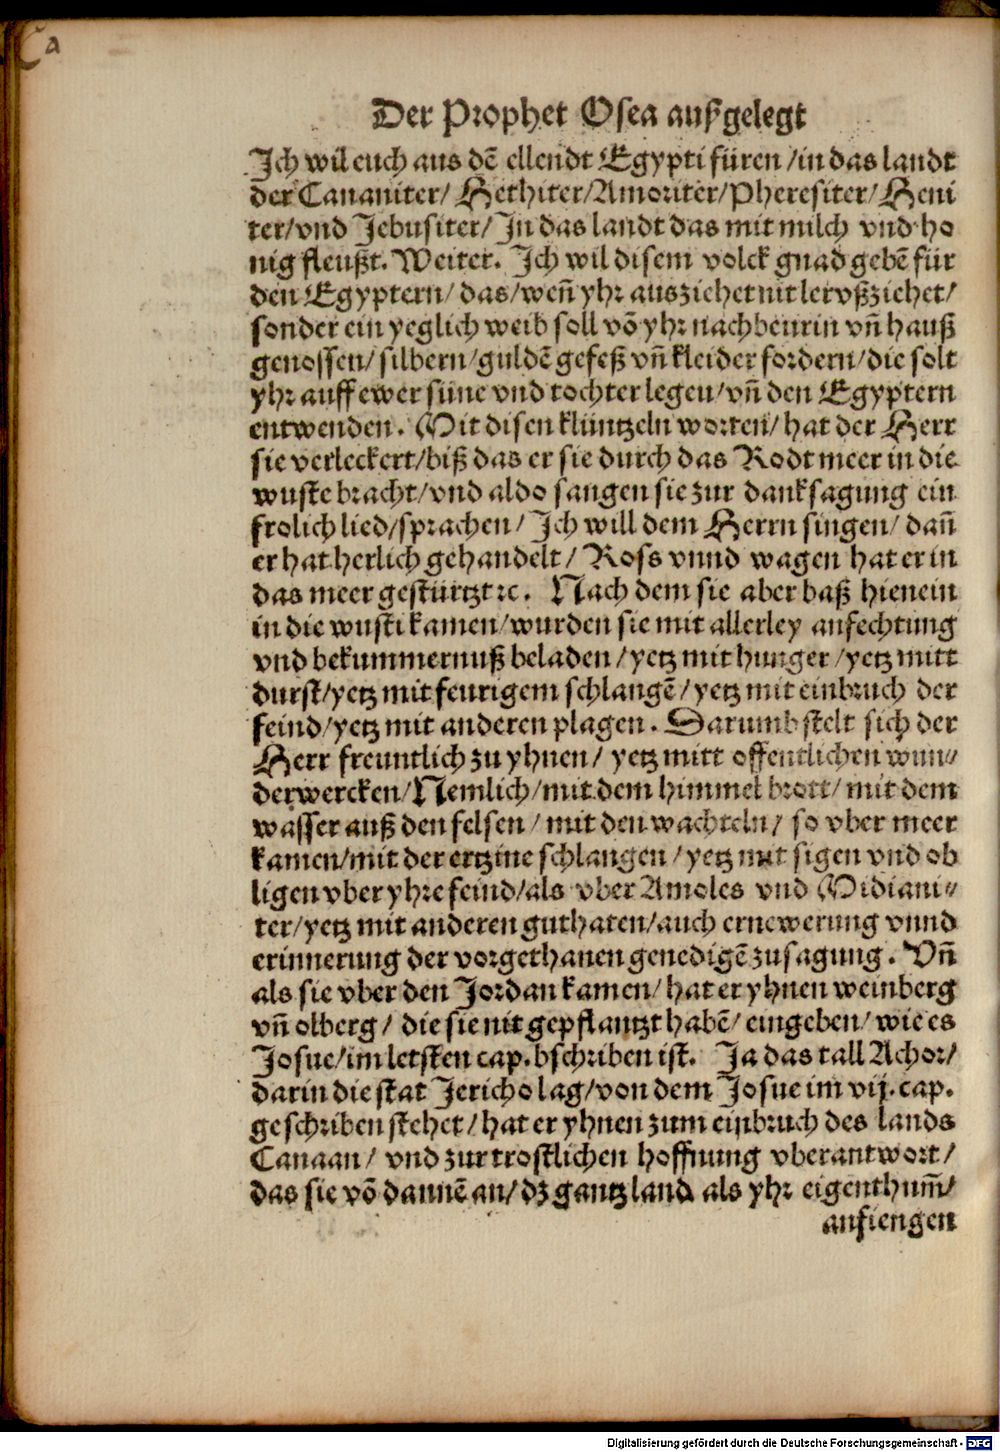 Ca
Der Prophet Osea außgelegt
Ich wil euch aus dẽ ellendt Egypti füren /in das landt
der Cananiter/ Hethiter/Amoriter/Pheresiter/ Heui
ter/vnd Jebusiter/ In das landt das mit milch vnd ho
nig fleußt. Weiter. Ich wil disem volck gnad gebẽ für
den Egyptern/ das/wen̄ yhr ausziehet nit ler vßziehet/
sonder ein yeglich weib soll võ yhr nachbeurin vn̄ hauß
genossen/silbern/guldẽ gefeß vn̄ kleider fordern/die solt
yhr auff ewer süne vnd tochter legen/vn̄ den Egyptern
entwenden. Mit disen klüntzeln worten/ hat der Herr
sie verleckert/biß das er sie durch das Rodt meer in die
wuste bracht/vnd aldo sangen sie zur danksagung ein
frolich lied/sprachen/ Ich will dem Herrn singen/ dan̄
er hat herlich gehandelt/ Ross vnnd wagen hat er in
das meer gestürtzt ꝛc. Nach dem sie aber baß hienein
in die wusti kamen/wurden sie mit allerley anfechtung
vnd bekummernuß beladen/yetz mit hunger/yetz mitt
durst/yetz mit feurigem schlangẽ/yetz mit einbruch der
feind/yetz mit anderen plagen. Darumb stelt sich der
Herr freuntlich zu yhnen/ yetz mitt offentlichen wun⸗
derwercken/Nemlich/mit dem himmel brott/ mit dem
wasser auß den felsen/ mit den wachteln/ so vber meer
kamen/mit der ertzine schlangen /yetz mit sigen vnd ob
ligen vber yhre feind/als vber Amoles vnd Midiani⸗
ter/yetz mit anderen guthaten/auch ernewerung vnnd
erinnerung der vorgethanen genedigẽ zusagung. Vn̄
als sie vber den Jordan kamen/hat er yhnen weinberg
vn̄ olberg/ die sie nit gepflantzt habẽ/ eingeben/ wie es
Josue/im letsten cap. bschriben ist. Ja das tall Achor/
darin die stat Jericho lag/von dem Josue im vij. cap.
geschriben stehet/hat er yhnen zum einbruch des lands
Canaan/ vnd zur trostlichen hoffnung vberantwort/
das sie võ dannẽ an/dz gantz land als yhr eigenthum̄/
anfiengen
Digitalisierung gefördert durch die Deutsche Forschungsgemeinschaft - DFG